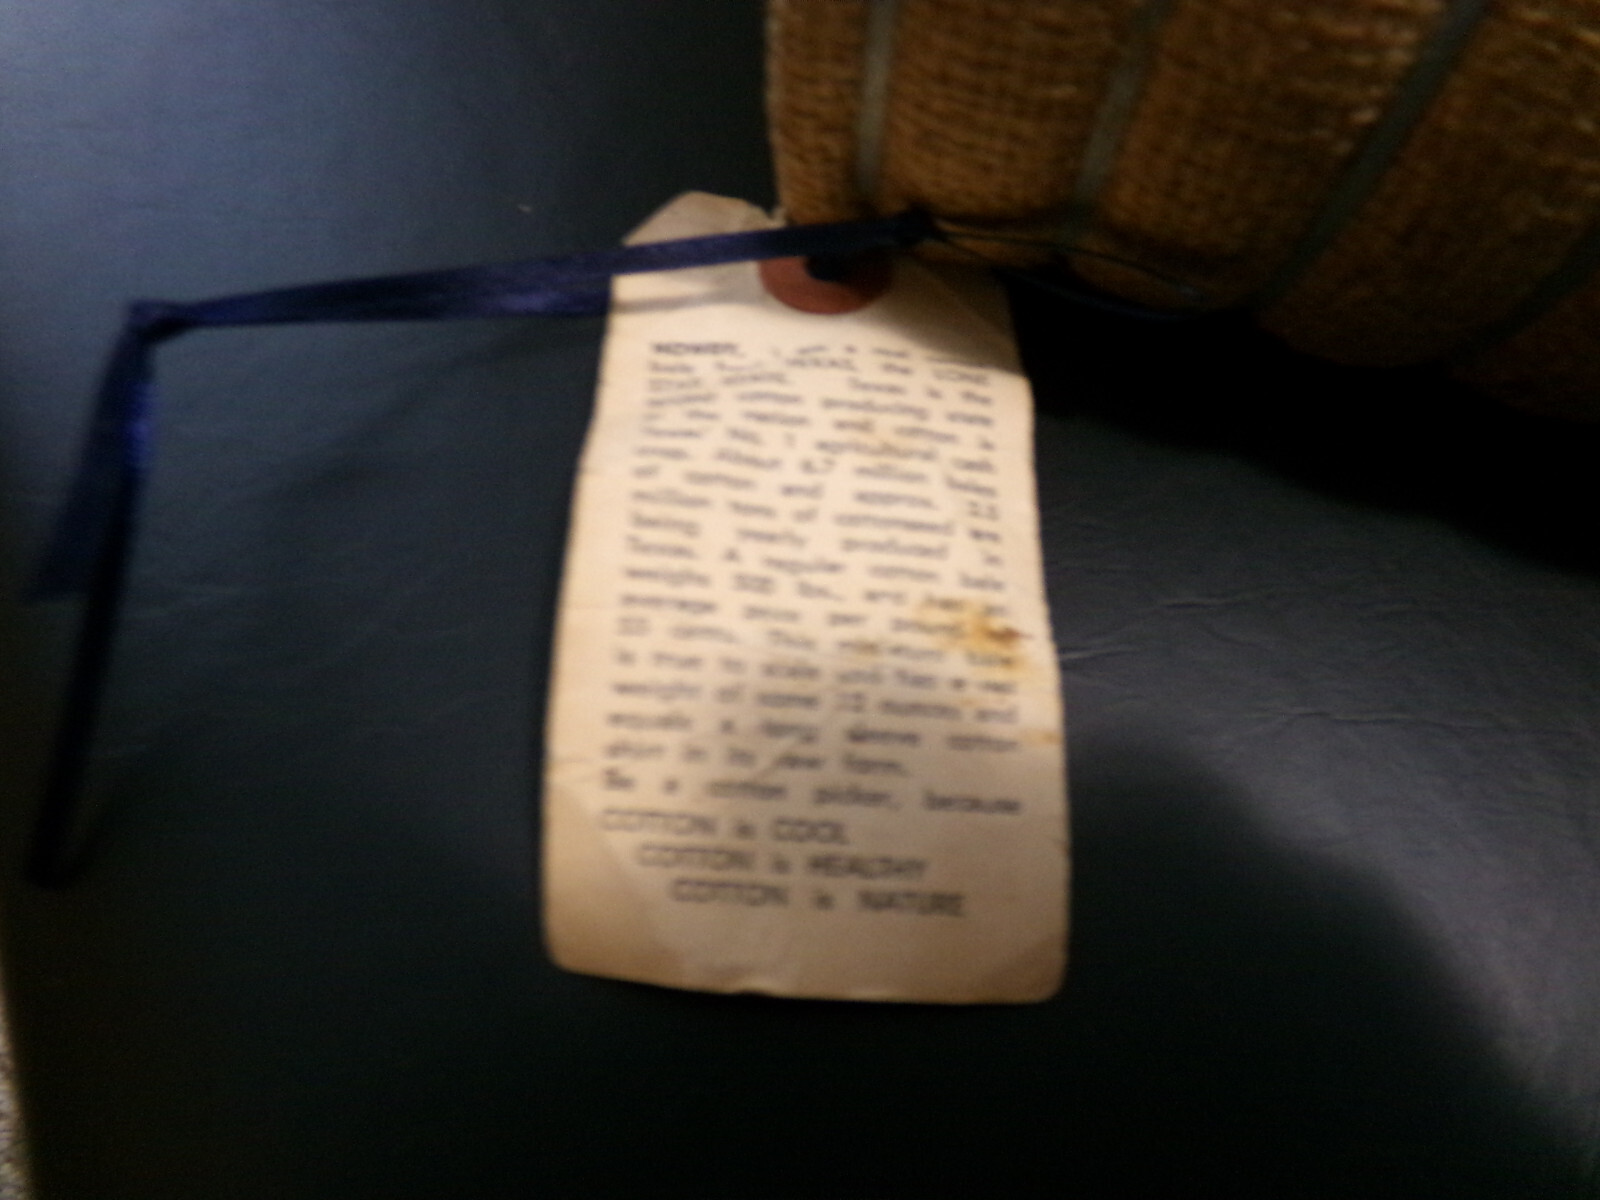 HOWDY, I am a real
bale from TEXAS, the LONE
STAR STATE. Texas is the
cotton producing state
in the nation and cotton is
Texas' No. 1 agricultural cash
crop. About 4.7 million bales
of cotton and approx.
million tons of cottonseed are
being yearly produced in
Texas. A regular cotton bale
weighs 500 lbs., and has an
average price per pound
cents. This miniature bale
is true to scale and has a net
weight of some 12 ounces and
equals a long sleeve cotton
shirt in its raw form.
Be a cotton picker, because
COTTON is COOL
COTTON is HEALTHY
COTTON is NATURE